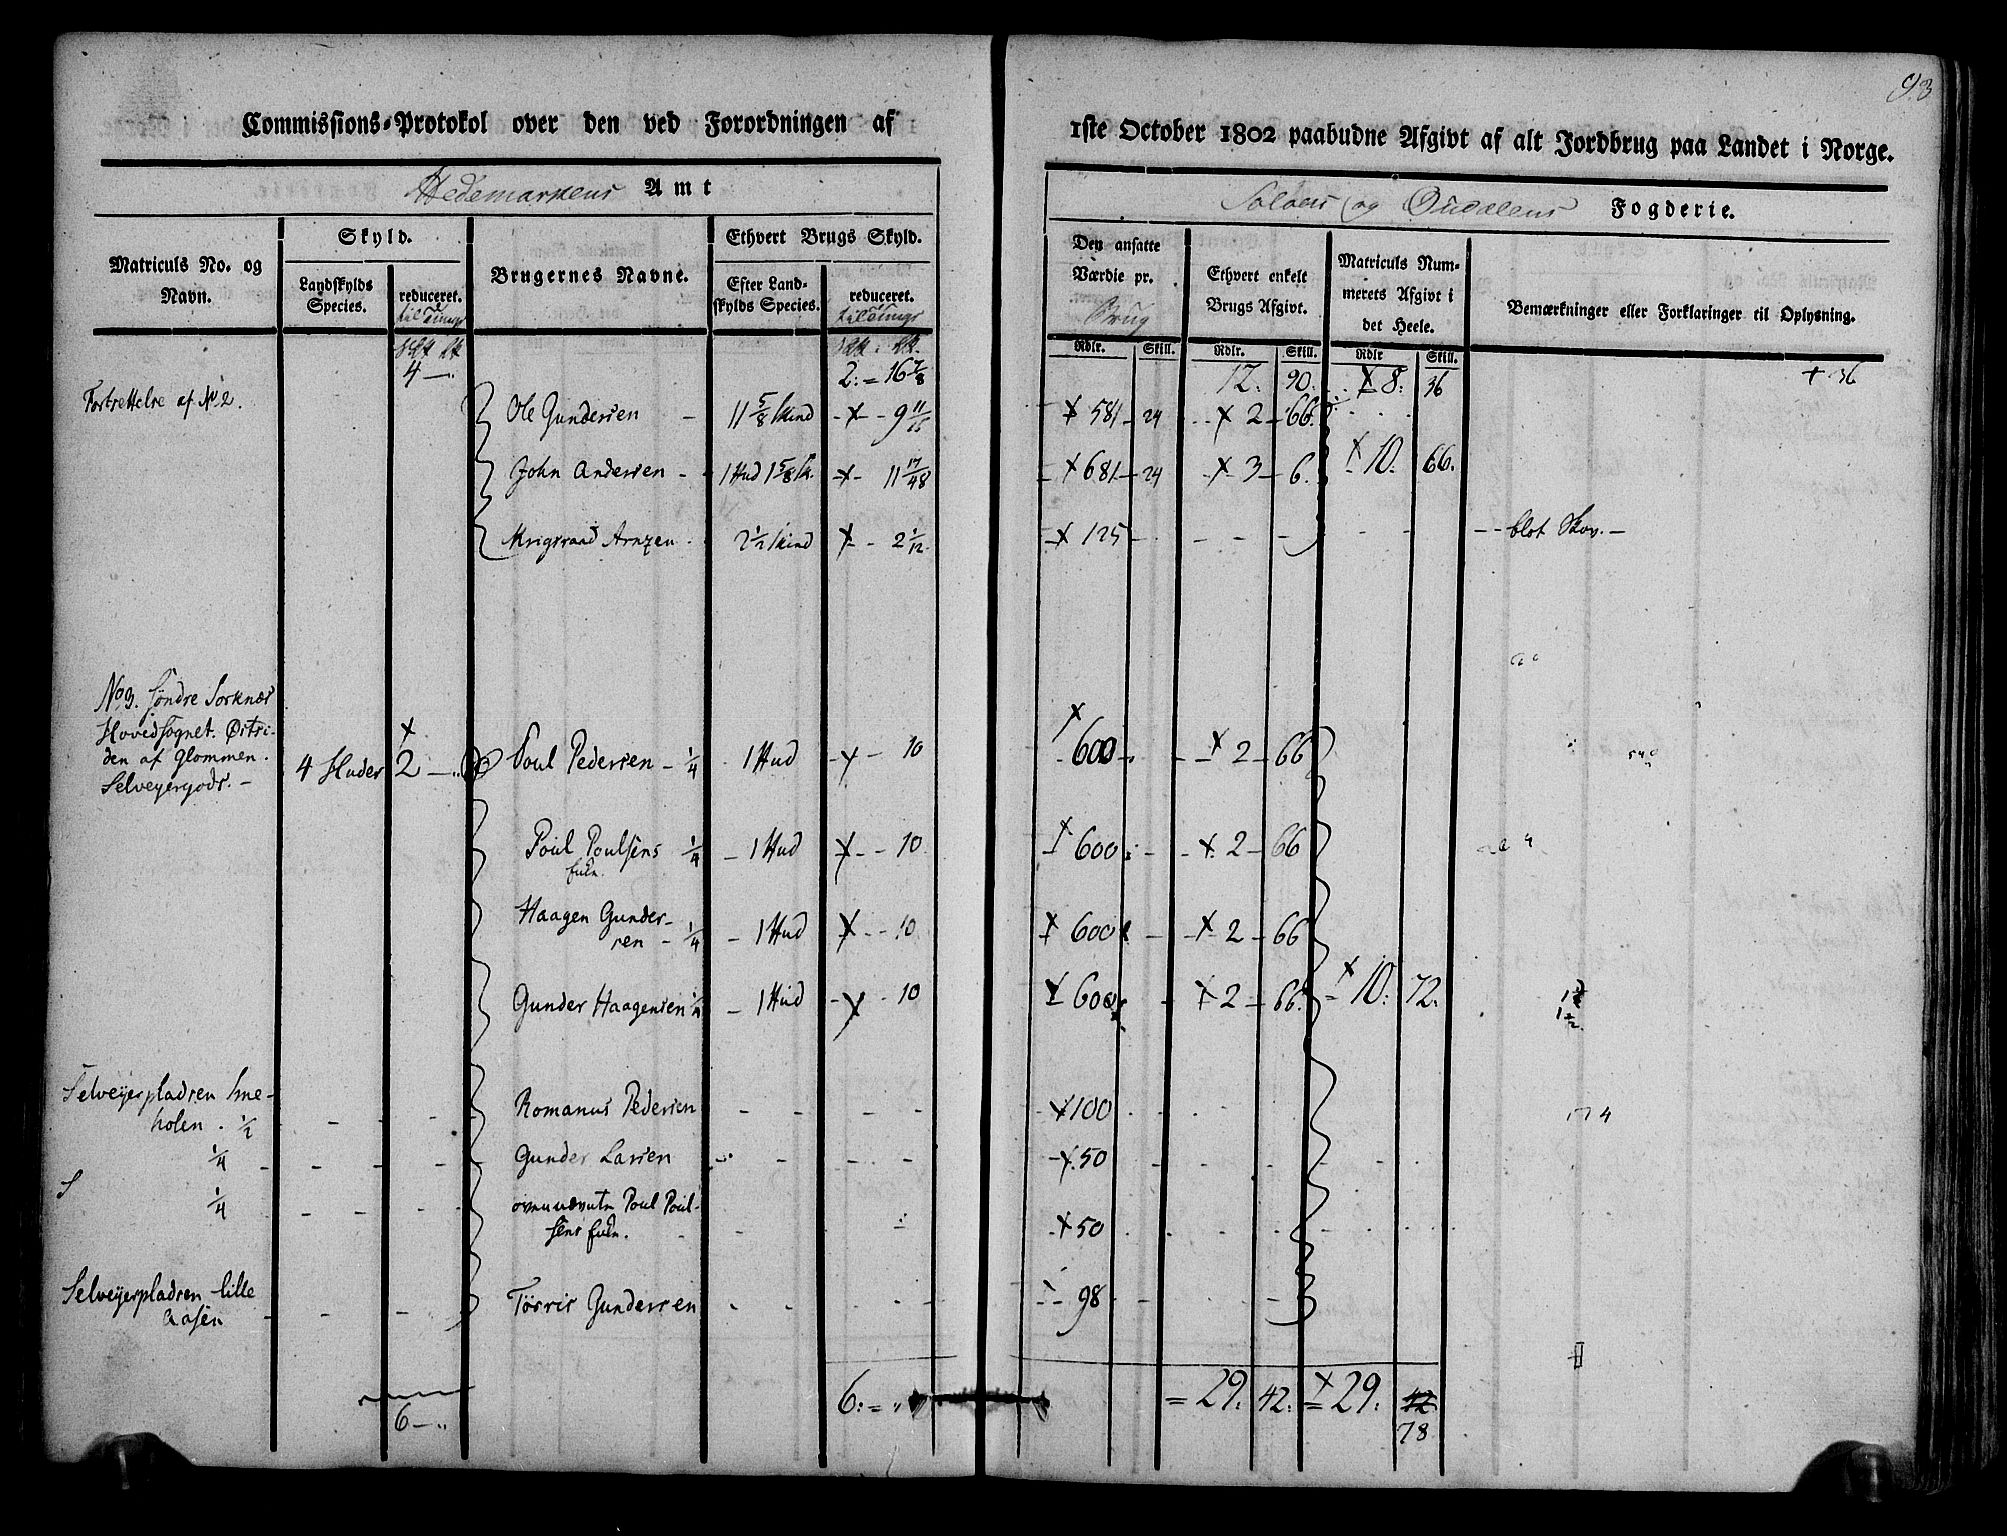 93
Commissions-Protokol over den ved Forordningen af
1ste October 1802 paabudne Afgivt af alt Jordbrug paa Landet i Norge.
Hedemarkens Amt
Soløers og Oudalens Fogderie.
Matriculs No. og Navn.
Skyld.
Landskylds Species.
reduceret.
til Tunge
Brugernes Navne.
Ethvert Brugs Skyld.
Efter Land-
skylds Species.
reduceret.
til Tunge
Den ansatte
Værdie pr.
Brug
Ethvert enkelt
Brugs Afgivt.
Matriculs Num-
merets Afgivt i
det Heele.
Bemærkninger eller Forklaringer til Oplysning.
Rdlr. Skill. Rdlr. Skill. Rdlr Skill.
4 — 2: = 16 7/8 12. 90. 8: 36 + 36
Fortsettelse af No 2.
Ole Gundersen - 11 5/8 skind - 9 11/16 581 - 24 2 - 66.
John Andersen - 1 Hud 1 5/8 sk. - 11 17/48 681 - 24 3 - 6. 10. 66.
Arnzen - 2 1/2 skind - 2 1/12 125 - - - - - - blot Skov. -
No 3. Søndre Sorknæs
Hovedsognet. Østsi-
den af Glommen.
Selveyergods. -
4 Huder 2 - Poul Pedersen - 1/4 1 Hud - 10 600 - 2 - 66
Poul Poulsens 1/4 - 1 Hud - 10 600 - 2 - 66
Enke.
Haagen Gunder-
sen - 1/4 - 1 Hud - 10 600 - 2 - 66
Gunder Haagensen 1/4 - 1 Hud - 10 600 - 2 - 66. 10. 72.
Selveyerpladsen Sme-
holen. 1/2 - - - Romanus Pedersen - - - - 100
1/4 - - - Gunder Larsen - - - - 50
1/4 - - - ovennævnte Poul Poul-
sens Enke. - - 50
Selveyerpladsen Lille
Aasen - - - Tørris Gundersen - - - - 98
6 - 6: = 29. 42. = 29. 42.
78